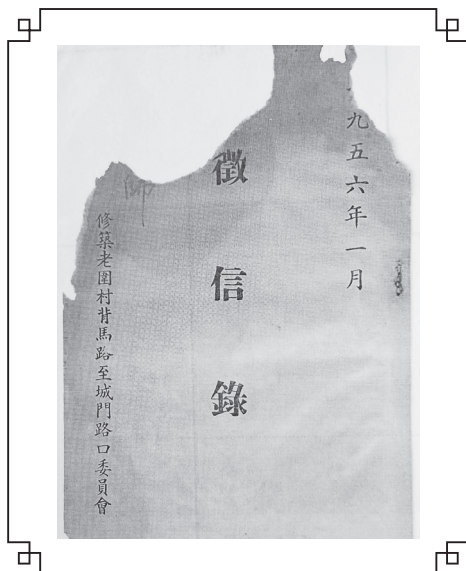 九五六年一月
徵信錄
修築老圍村背馬路至城門路口委員會